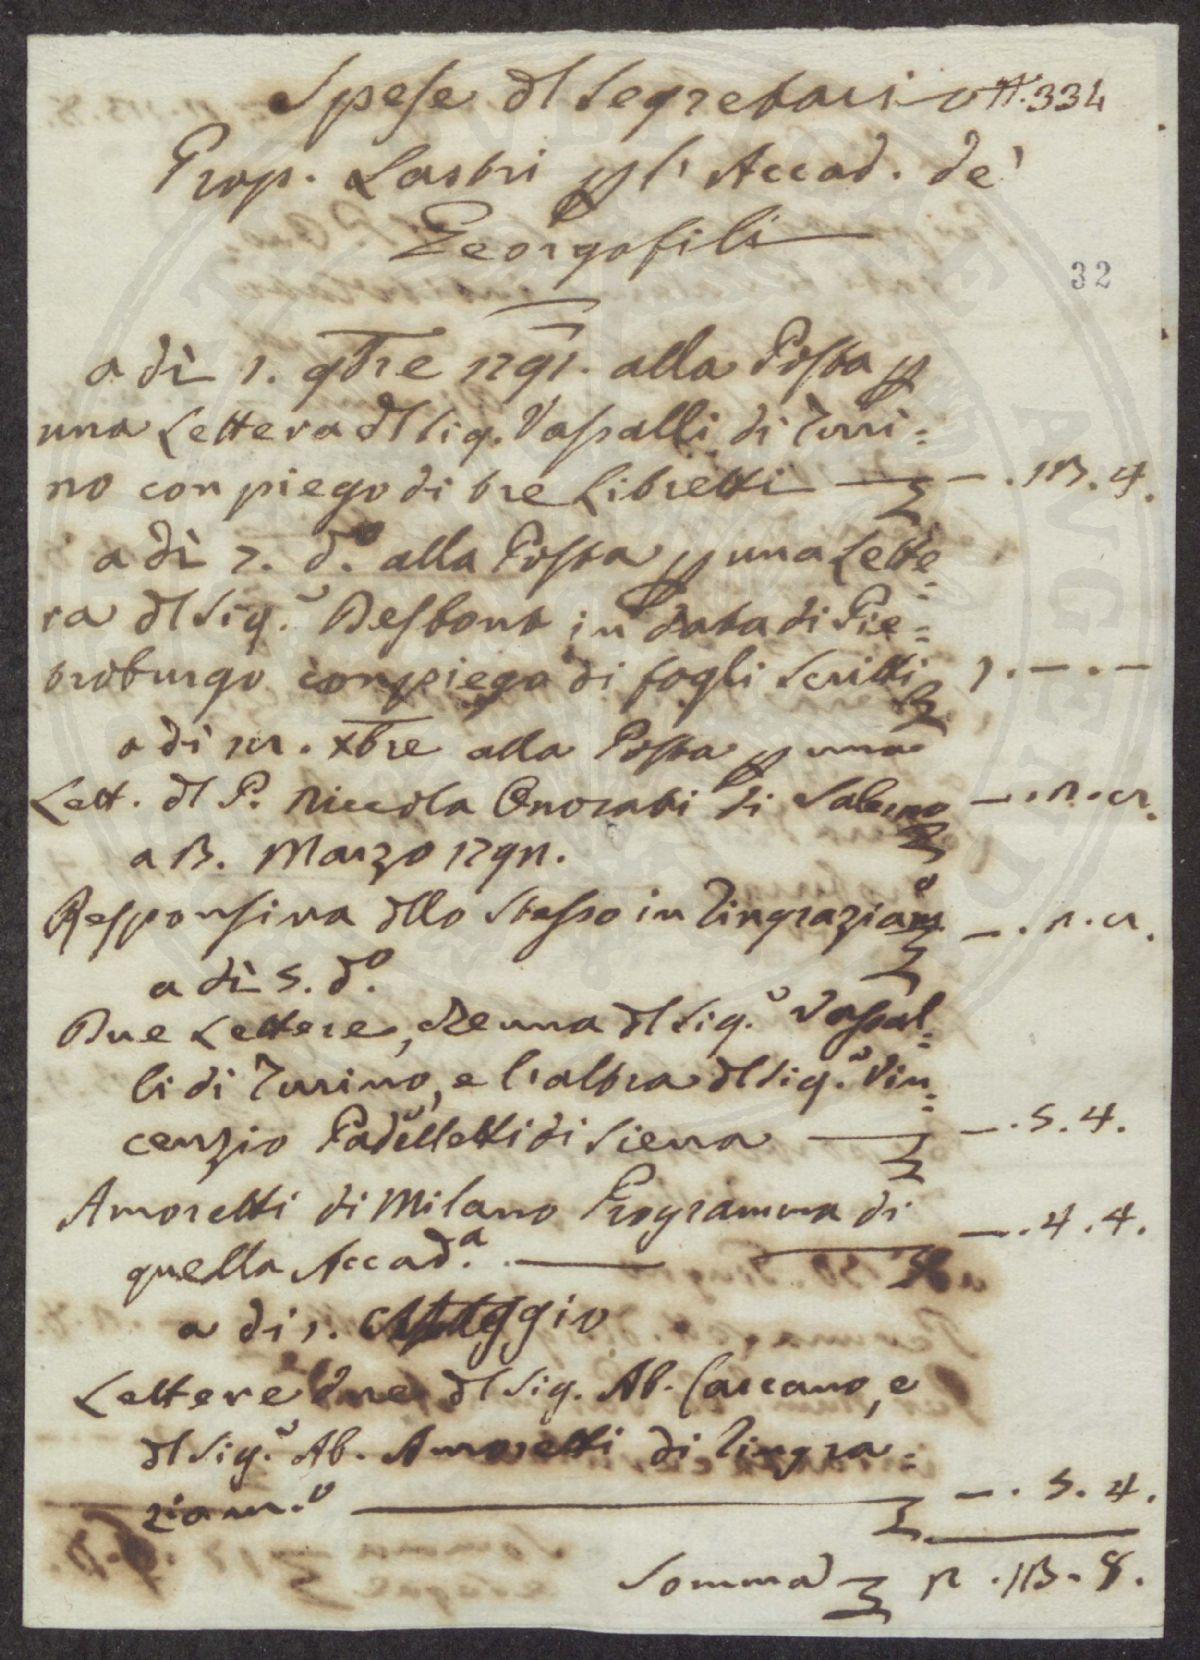 Spese dl Segretario N. 334
Prop. Lastri p l'Accad. de'
Georgofili
32
a dì 1. 9bre 1791. alla Posta p
una Lettera dl Sig. Vassalli di Turi=
no con piego di tre Libretti — –. 13. 4.
a dì 7. d.o alla Posta p una Lette=
ra dl Sig.r in data di Pie=
troburgo con piego di fogli scritti 1. – . –
a dì Xbre alla Posta p una
Lett. dl P. Niccola Onorati di Salerno –. 2.
a 3. Marzo 1792.
Responsiva dllo Stesso in ringraziam.o –. 2.
a dì 5. d.o
Due Lettere, che una dl Sig.r Vassal=
li di Turino, e l'altra dl Sig.r Vin=
cenzio Padelletti di Siena — –. 5. 4.
Amoretti di Milano Programma di
quella Accad.a — –. 4. 4.
a dì 1. Maggio
Lettere due dl Sig. Ab. Carcano, e
dl Sig.r Ab. Amoretti di ringra=
ziam.o — –. 5. 4.
Somma 2. 13. 8.